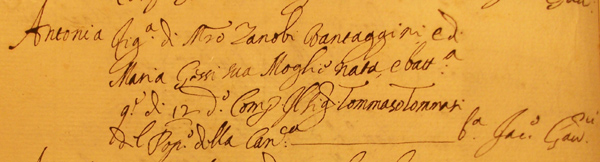 Antonia fig.a di Mro Zanobi Vantaggini e di
Maria Gossi sua Moglie nata, e batt.a
q.o di 12 d.o Comp. Il Sig. Tommaso Tommasi
del Pop.o della Can.ca fu Jac.o